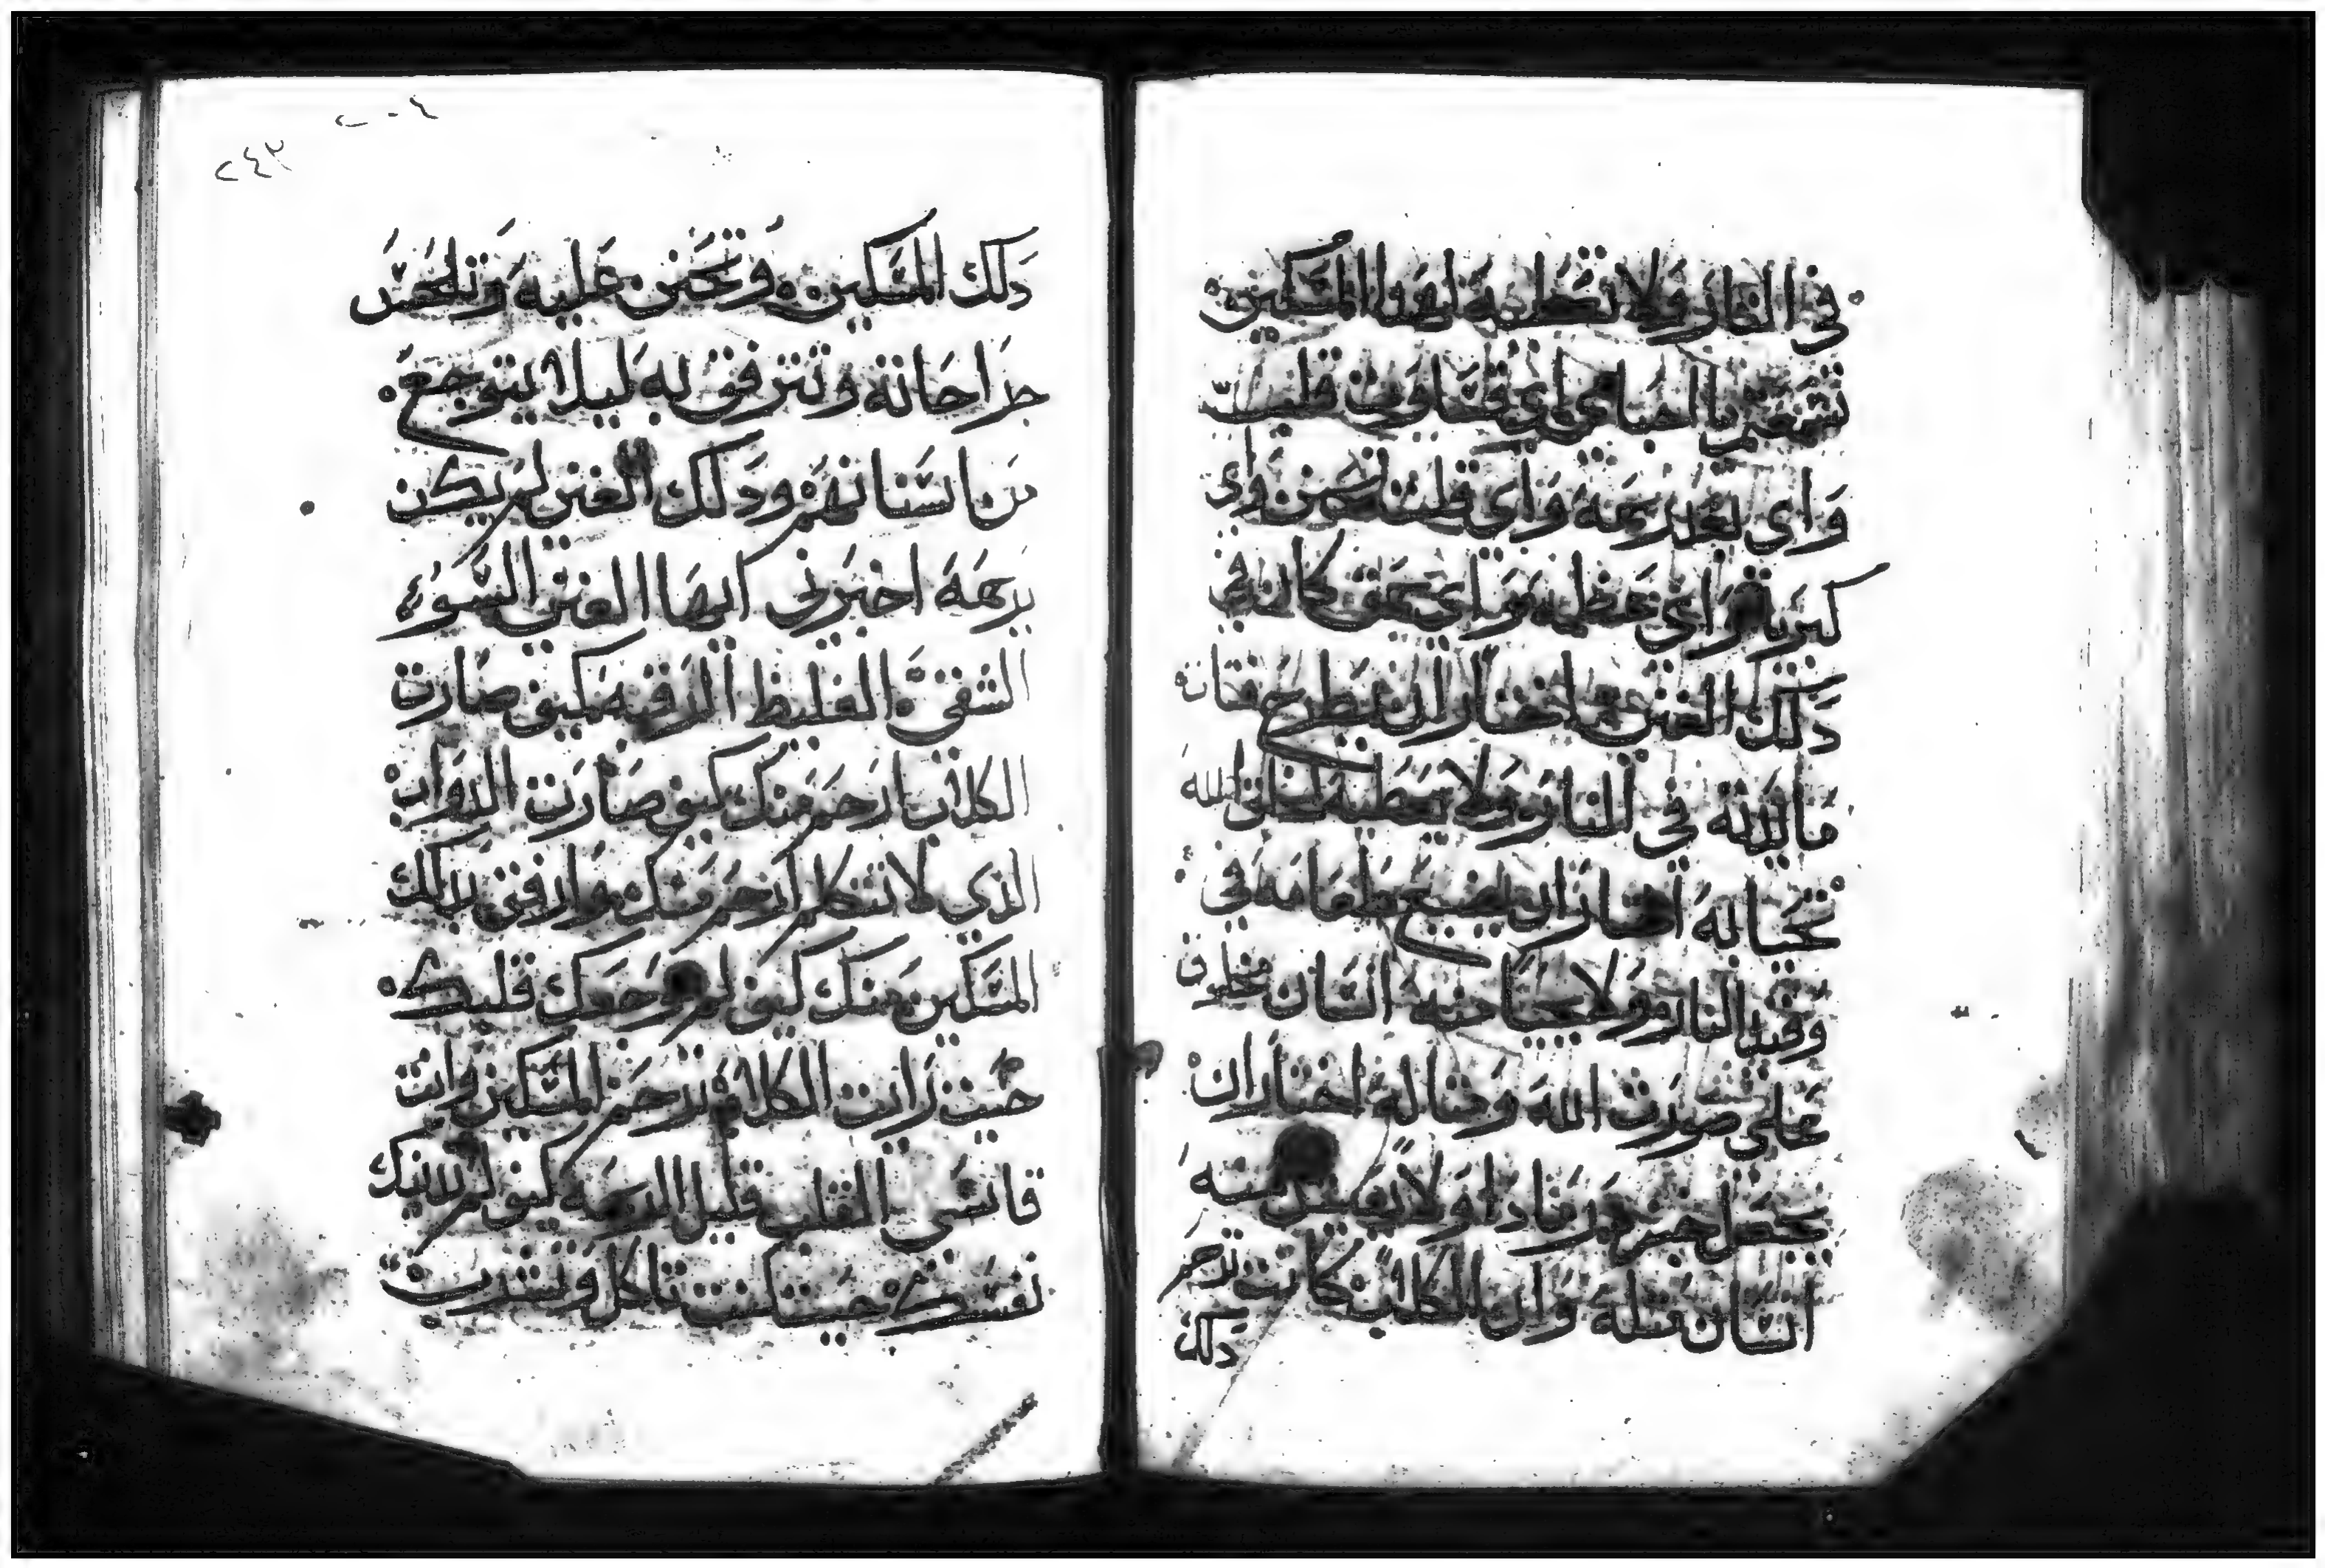 في النار ولا تعطيه لهذا المسكين
سمعتم يا احباي اي قساوت قلب
واي بعد رحمة واي قلت تحنن واي
كبريا واي عظمه واي حمق كان في
دلك الغني اختار ان يطرح فتات
مايدته في النار ولا يعطيه لخلق الله
تحيا به اختار ان يضيع طعامه في
وقيد النار ولا يحيا منه انسان مخلوق
على صورت الله ومثاله اختار ان
يجعل خبزه رمادا ولا يعيش منه
انسان مثله وان الكلاب كانت ترحم
دلك
٢٠٤
٢٤٣
دلك المسكين وتحنن عليه وتلحس
جراحاته وتترفق به ليلا يتوجع
من اسنانهم ودلك الغني لم يكن
يرحمه اخبرني ايها الغني السوء
الشقي الغليظ الرقبه كيف صارت
الكلاب ارحم منك كيف صارت الدواب
الذي لا تتكلم ارحم منك وارفق بدلك
المسكين منك كيف لم يوجعك قلبك
حيت رايت الكلاب ترحم المسكين وانت
قاسي القلب قليل الرحمه كيف لم
نفسك حيت كنت تاكل وتشرب